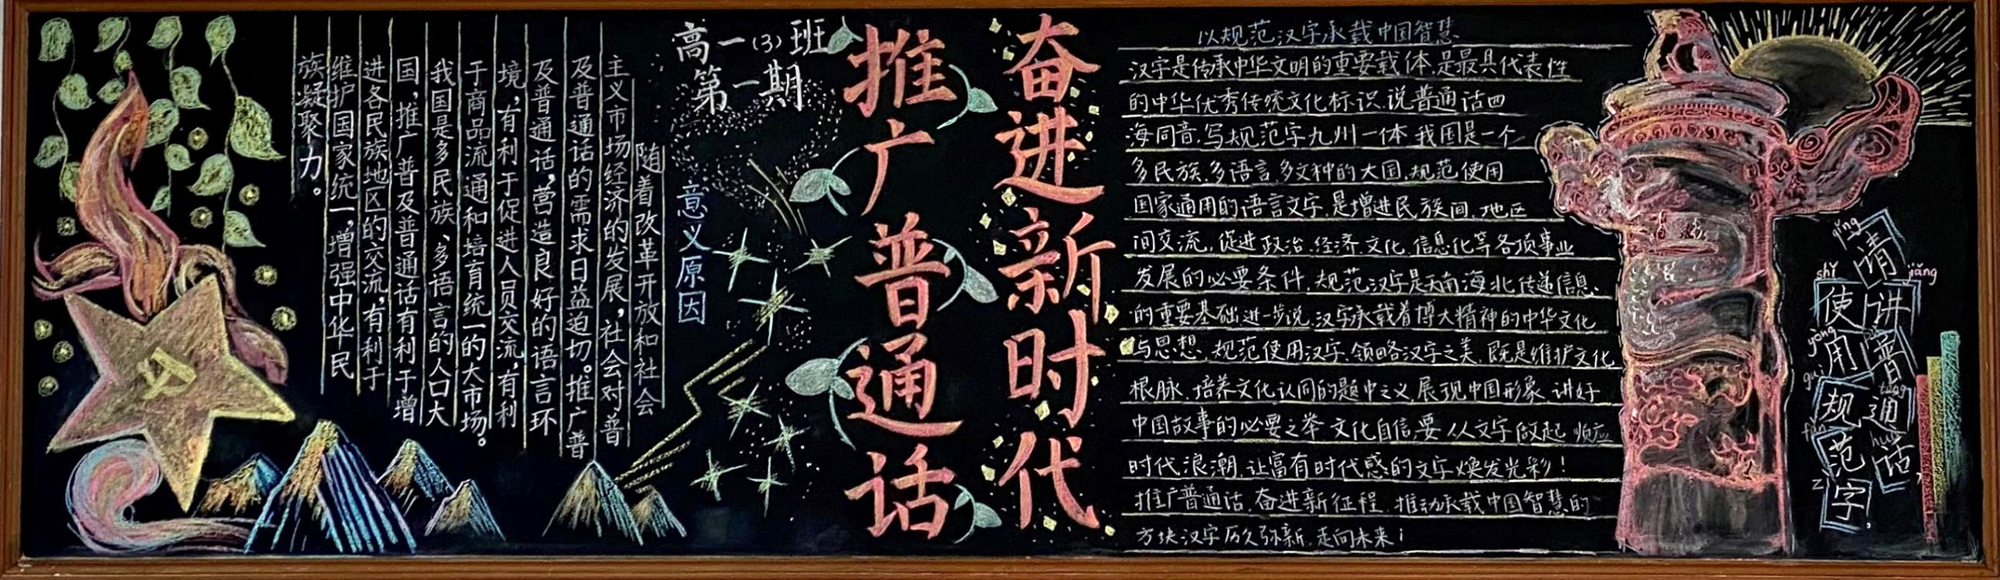 高一(3)班
第一期
奋进新时代
推广普通话
意义原因
随着改革开放和社会
主义市场经济的发展，社会对普
及普通话的需求日益迫切。推广普
及普通话，营造良好的语言环
境，有利于促进人员交流，有利
于商品流通和培育统一的大市场。
我国是多民族、多语言的人口大
国，推广普及普通话有利于增
进各民族地区的交流，有利于
维护国家统一，增强中华民
族凝聚力。
以规范汉字承载中国智慧
汉字是传承中华文明的重要载体,是最具代表性
的中华优秀传统文化标识.说普通话四
海同音,写规范字九州一体.我国是一个
多民族,多语言,多文种的大国,规范使用
国家通用的语言文字,是增进民族间,地区
间交流,促进政治,经济,文化,信息化等各项事业
发展的必要条件.规范汉字是天南海北传递信息
的重要基础.进一步说,汉字承载着博大精神的中华文化
与思想.规范使用汉字,领略汉字之美,既是维护文化
根脉,培养文化认同的题中之义,展现中国形象,讲好
中国故事的必要之举.文化自信要从文字做起,顺应
时代浪潮,让富有时代感的文字焕发光彩!
推广普通话,奋进新征程,推动承载中国智慧的
方块汉字历久弥新,走向未来!
qǐng jiǎng pǔ tōng huà
请讲普通话,
shǐ yòng guī fàn zì
使用规范字。